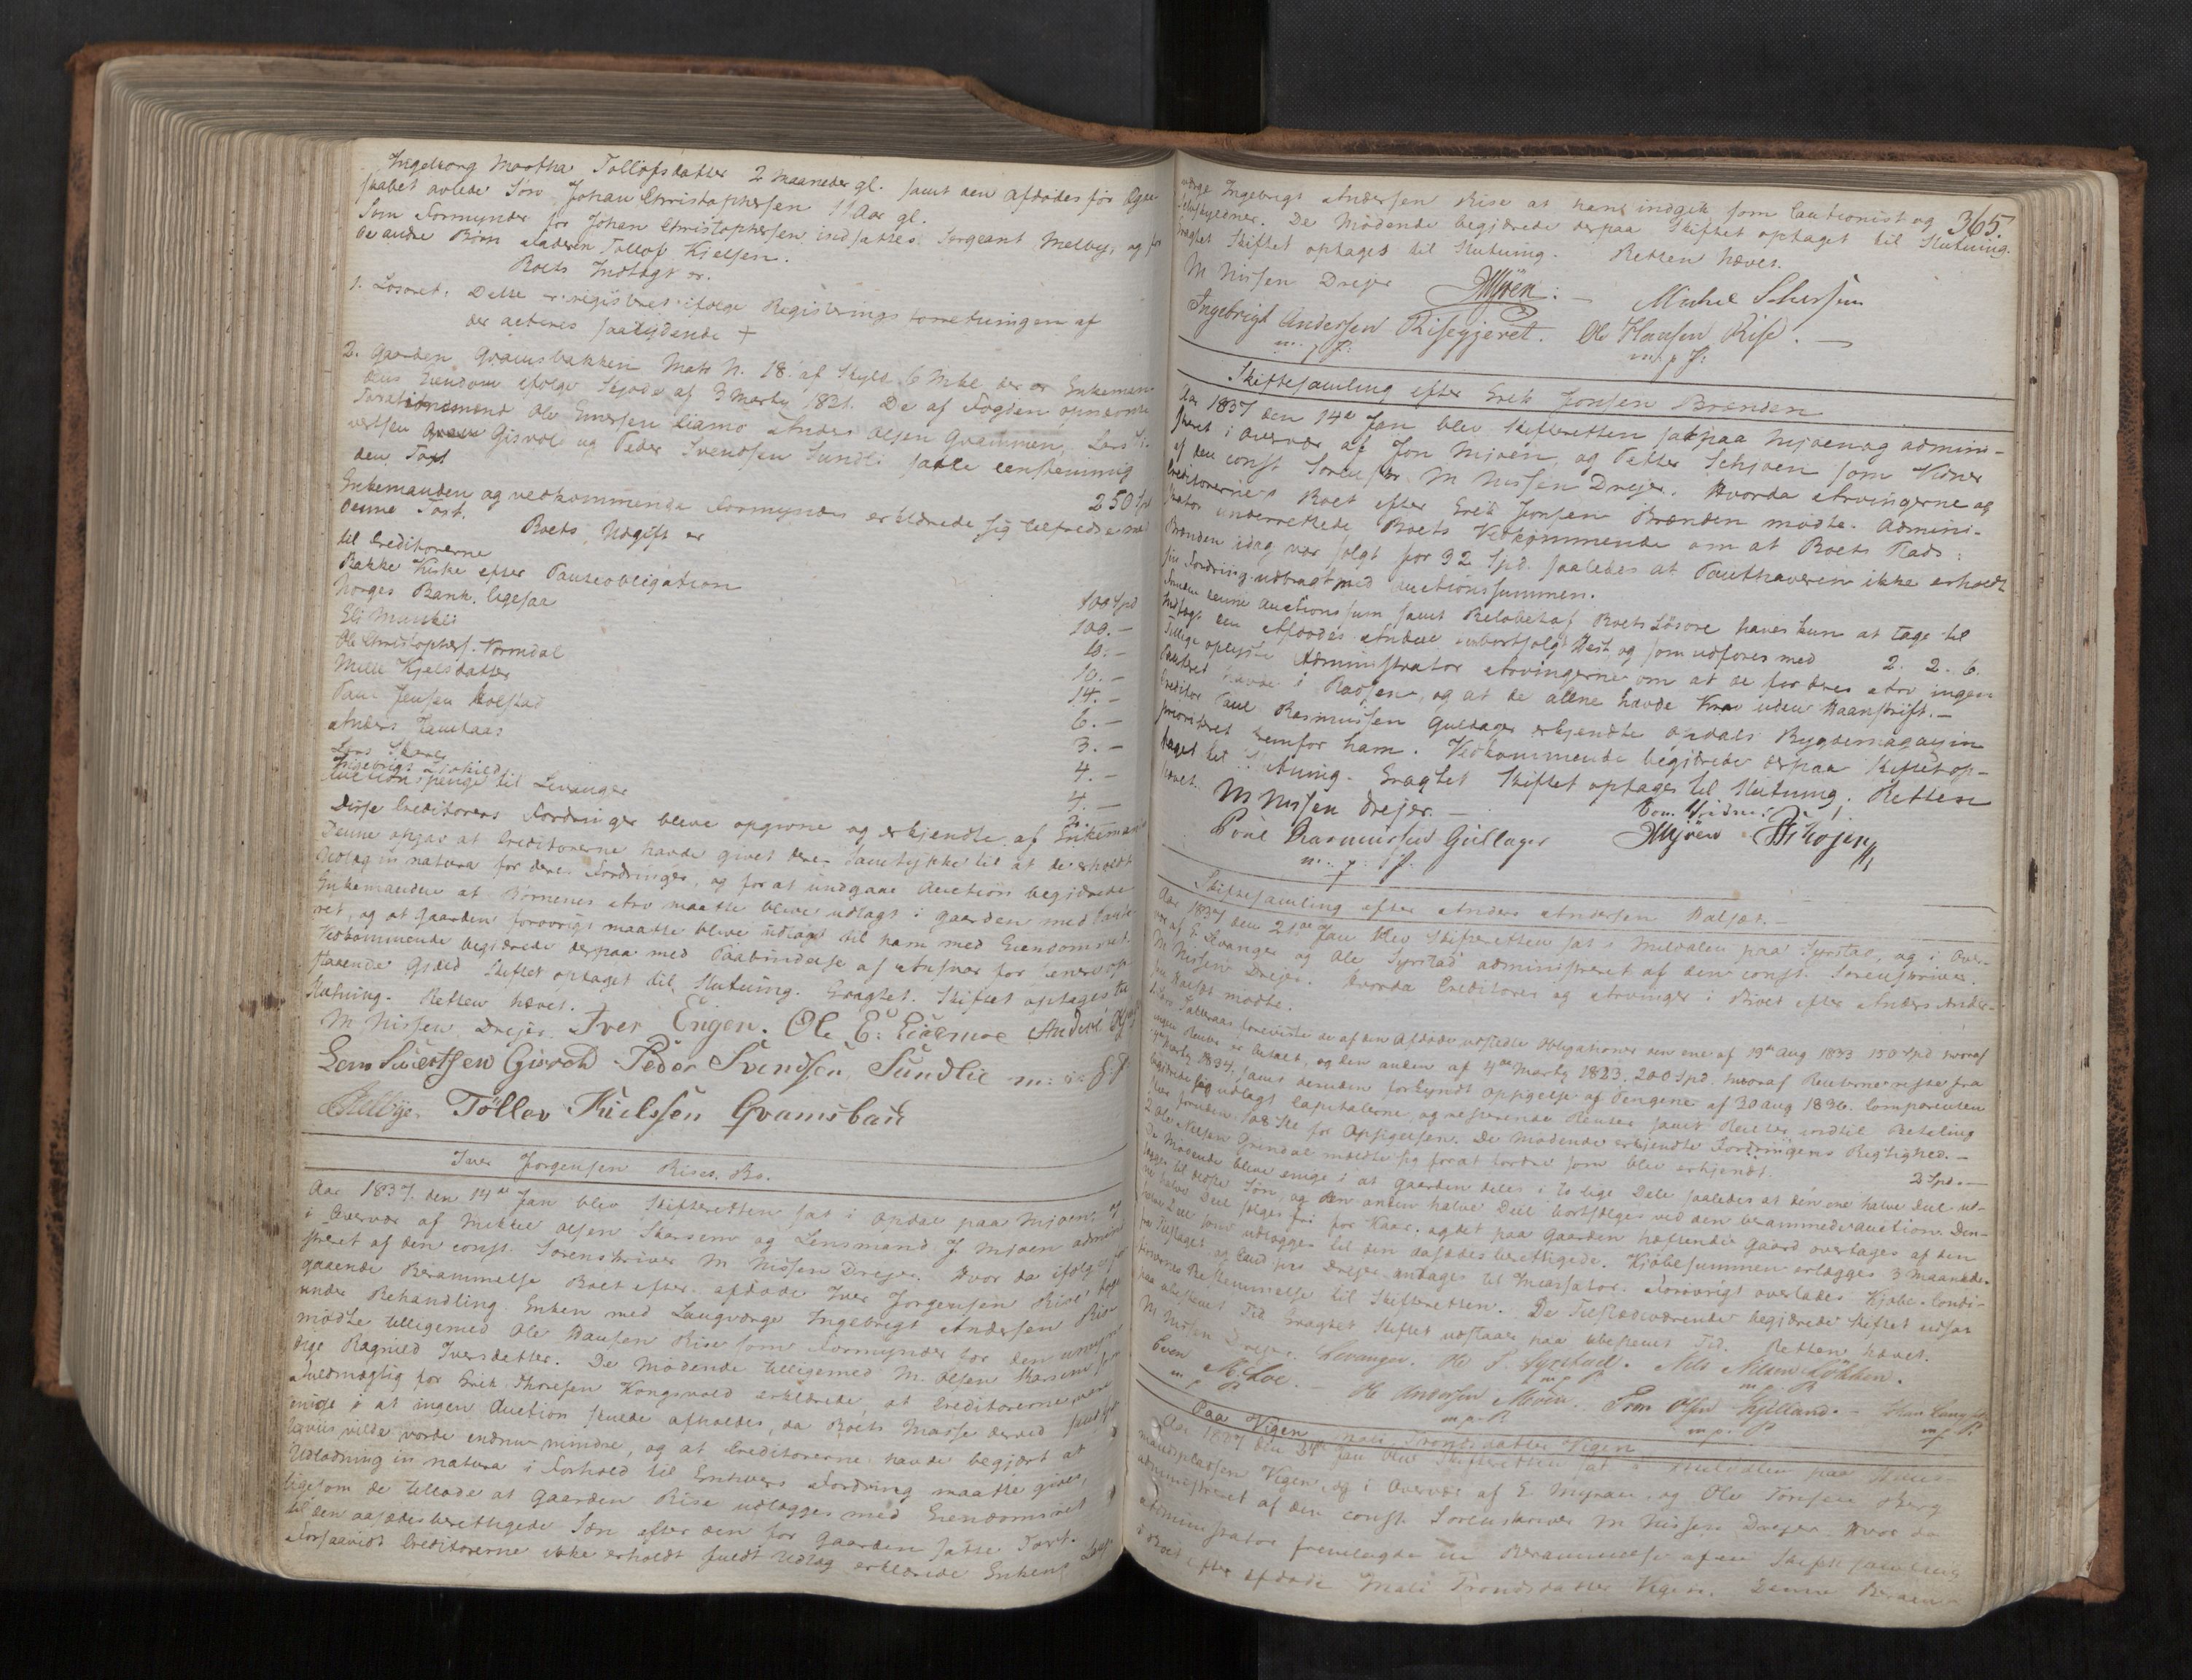 Ingeborg Martha Tollofsdatter 2 Maaneder gl. samt den afdødes før Egte
skabet avlede Søn Johan Christophersen 11 Aar gl.
Som Formynder for Johan Christophersen indsattes Sergeant Melbye, og for
de andre Børn Faderen Tollof Kjelsen.
Boets Indtægt er.
1. Løsøret. Dette er registreret ifølge Registerings forretningen af
der acteres saalydende +
2. Gaarden Gramsbakken Matr N. 18 af Skyld 6 Mkl der er Enkeman
dens Eiendom ifølge Skjøde af 3 Marty 1831. De af Fogden opnævnte
Taxationsmænd Ole Emersen Liamo Anders Olsen Grammen, Lars Si
vertsen Gisvol og Peder Svendsen Sundli satte eenstemmig
den Taxt 250 Spd
Enkemanden og vedkommende Formynder erklærede sig tilfredse med
denne Taxt.
Boets Udgift er
til Creditorerne
Bakke Kirke efter Panteobligation 100 Spd
Norges Bank ligesaa 100.-
Eli Munkli 10.-
Ole Christophers. Normdal 10.-
Mille Kjelsdatter 14.-
Paul Jensen Holstad 6.-
Anders 3.-
Lars 4.-
Ingebrigt 4.-
Auctionspenge til Levanger 2.
Disse Creditorers Fordringer bleve opgivne og erkjendte af Enkemanden
Denne angav at Creditorerne havde givet deres Samtykke til at de erholdt
Udlæg in natura for deres Fordringer, og for at undgaae Auction begjærede
Enkemanden at Børnenes Arv maatte blive udlagt i Gaarden med Pante
ret, og at Gaarden forøvrigt maatte blive udlagt til ham med Eiendomsret.
Vedkommende begjærede derpaa med Paabindelse af Ansvar for senere op
staaende Gjæld Skiftet optaget til Slutning. Eragtet. Skiftet optages til
Slutning. Retten hævet.
M Nissen Drejer. Iver Engen. Ole E: Liaemoe Anders
Lars Siuertsen Gisvold Peder Svendsen Sundlie m: p: f:
Melbye. Töllev Kielssen Gramsbak
Iver Jørgensen Rises Bo.
Aar 1837. den 14de Jan blev Skifteretten sat i Opdal paa Mjøen og
i Overvær af Mikkel Olsen Skarsem og Lensmand J Mjøen admini
streret af den const. Sorenskriver M Nissen Drejer. Hvor da ifølge for
gaaende Berammelse Boet efter afdøde Iver Jørgensen Rise toges
under Behandling. Enken med Laugværge Ingebrigt Andersen Rise
mødte tilligemed Ole Hansen Rise som Formynder for den umyn
dige Ragnild Iversdatter. De Mødende tilligemed M. Olsen Skarsem som
Fuldmægtig for Erik Thoresen Kongsvold erklærede, at Creditorerne vare
enige i at ingen Auction skulde afholdes, da Boets Masse derved
vilde vorde endnu mindre, og at Creditorerne havde begjært at
Udlodning in natura i Forhold til Enhvers Fordring maatte gives,
ligesom de tillode at Gaarden Rise udlægges med Eiendomsret
til den aasædesberettigede Søn efter den for Gaarden satte Taxt.
Forsaavidt Creditorerne ikke erholdt fuldt Udlæg erklærede Enkens Laug
365.
værge Ingebrigt Andersen Rise at han indgik som Cautionist og
Selvskyldner. De Mødende begjærede derpaa Skiftet optaget til Slutning.
Eragtet Skiftet optages til Slutning. Retten hævet.
M Nissen Drejer JMjøen. Mickel
Ingebrigt Andersen Riseggjeret. Ole Hansen Rise.
m. p. f: m. p f:
Skiftesamling efter Erik Jonsen Brænden
Aar 1837 den 14de Jan blev Skifteretten sat paa Mjøen og admini-
streret i Overvær af Jon Mjøen, og Petter Schjøen som Vidner
af den const Sorenskr M Nissen Drejer. Hvorda Arvingerne og
Creditorerne i Boet efter Erik Jonsen Brænden mødte. Admini-
strator underrettede Boets Vedkommende om at Boets Plads
Brænden idag var solgt for 92 Spd. saaledes at Panthaveren ikke erholdt
sin Fordring udtragt med Auctionssummen.
Foruden denne Auctionssum samt Beløbet af Boets Løsøre haves kun at tage til
Indtægt den Afdødes Andeel i en bortsolgt Hest og som udføres med 2. 2. 6.
Tillige oplyste Administrator Arvingerne om at de for deres Arv ingen
Panteret havde i Pladsen, og at de allene havde Krav uden Haandskrift.-
Creditor Poul Rasmussen Guldager erkjendte Opdals Bygdemagazin
prioriteret fremfor ham. Vedkommende begjærede derpaa Skiftet op-
taget til Slutning. Eragtet Skiftet optages til Slutning. Retten
hævet.
M Nissen Drejer. Som Vidner
Poul Rasmussen Gullager JMjøen
m. p. f.
Skiftesamling efter Anders Andersen Kalsæt.
Aar 1837 den 21de Jan blev Skifteretten sat i Meldalen paa Syrstad, og i Over-
vær af E Levanger og Ole Syrstad administreret af den const. Sorenskriver
M Nissen Drejer. Hvorda Creditorer og Arvinger i Boet efter Anders Ander-
sen Kalsæt mødte.
foreviste de af den Afdøde udstedte Obligationer den ene af 19de Aug 1833 150 Spd hvoraf
ingen Rente er betalt, og den anden af 4de Marty 1823. 200 Spd. hvoraf Renterne resterer fra
Marty 1834, samt desuden forkyndt Opsigelse af Pengene af 30 Aug 1836. Comparenten
begjærede sig udlagt Capitalerne og resterende Renter samt Renter indtil Betaling
skeer foruden 108 Sk for Opsigelsen. De Mødende erkjendte Fordringens Rigtighed.-
2 Ole Nilsen Grindal meldte sig for at fordre som blev erkjendt. 2 Spd.-
De Mødende bleve enige i at Gaarden deles i to lige Dele saaledes at den ene halve Deel ud-
lægges til ældste Søn, og den anden halve Deel bortsælges ved den berammede auction. Den-
ne halve Deel sælges fri for Kaar, og det paa Gaarden hæftende Gaard overtages af den
halve Deel som udlægges til den aasædesberettigede. Kjøbesummen erlægges 3 Maaneder
fra Tilslaget og Cand juris Drejer antages til Incassator. Forøvrigt overlades Kjøbe-Condi-
tionernes Bestemmelse til Skifteretten. De Tilstedeværende begjærede Skiftet udsat
paa ubestemt Tid. Eragtet Skiftet udstaar paa ubestemt Tid. Retten hævet.
M Nissen Drejer. Levanger. Ole P. Syrstad. Nils Nilsen Løkken.
Even M. Loe. Ole Andersen Moen. Even Olsen Kjelland.
Paa Vigen Mali Trondsdatter Vigen
Aar 1837 den 24de Jan blev Skifteretten sat i Meldalen paa Huus-
mandspladsen Vigen, og i Overvær af E. Myran, og Ole Torsen Berg
administreret af den const Sorenskriver M Nissen Drejer. Hvor da
Administrator fremlagde en Berammelse af en Skiftesamling
i Boet efter afdøde Mali Trondsdatter Vigen. Denne Beram